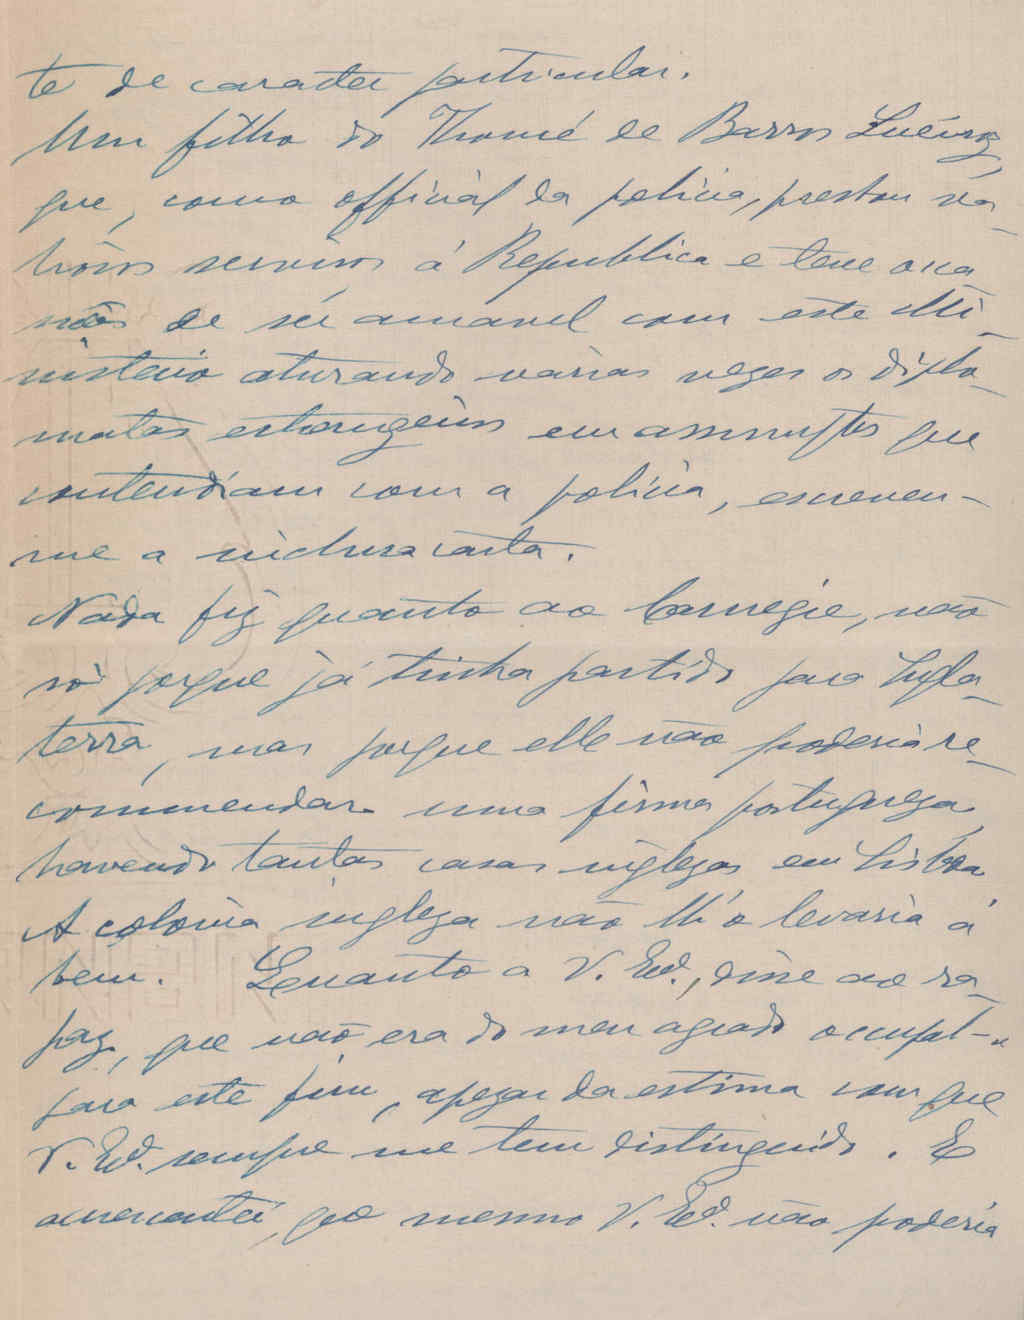 te de caracter particular.
Um filho do Thomé de Barros Queiroz,
que, como official da policia, prestou va-
liosos serviços á Republica e teve occa
sião de ser amavel com este Mi-
nisterio aturando várias vezes os diplo-
matas estrangeiros em assumptos que
contendiam com a policia, escreveu-
me a inclusa carta.
Nada fiz quanto ao Carnegie, não
só porque já tinha partido para Ingla-
terra, mas porque elle não poderia re-
commendar uma firma portugueza,
havendo tantas casas inglezas em Lisboa
A colonia ingleza não lh'o levaria á
bem. Quanto a V. Exª., disse ao ra-
paz, que não era do meu agrado occupal-o
para este fim, apezar da estima com que
V. Exª. sempre me tem distinguido. E
accrescentei, que mesmo V. Exª. não poderia